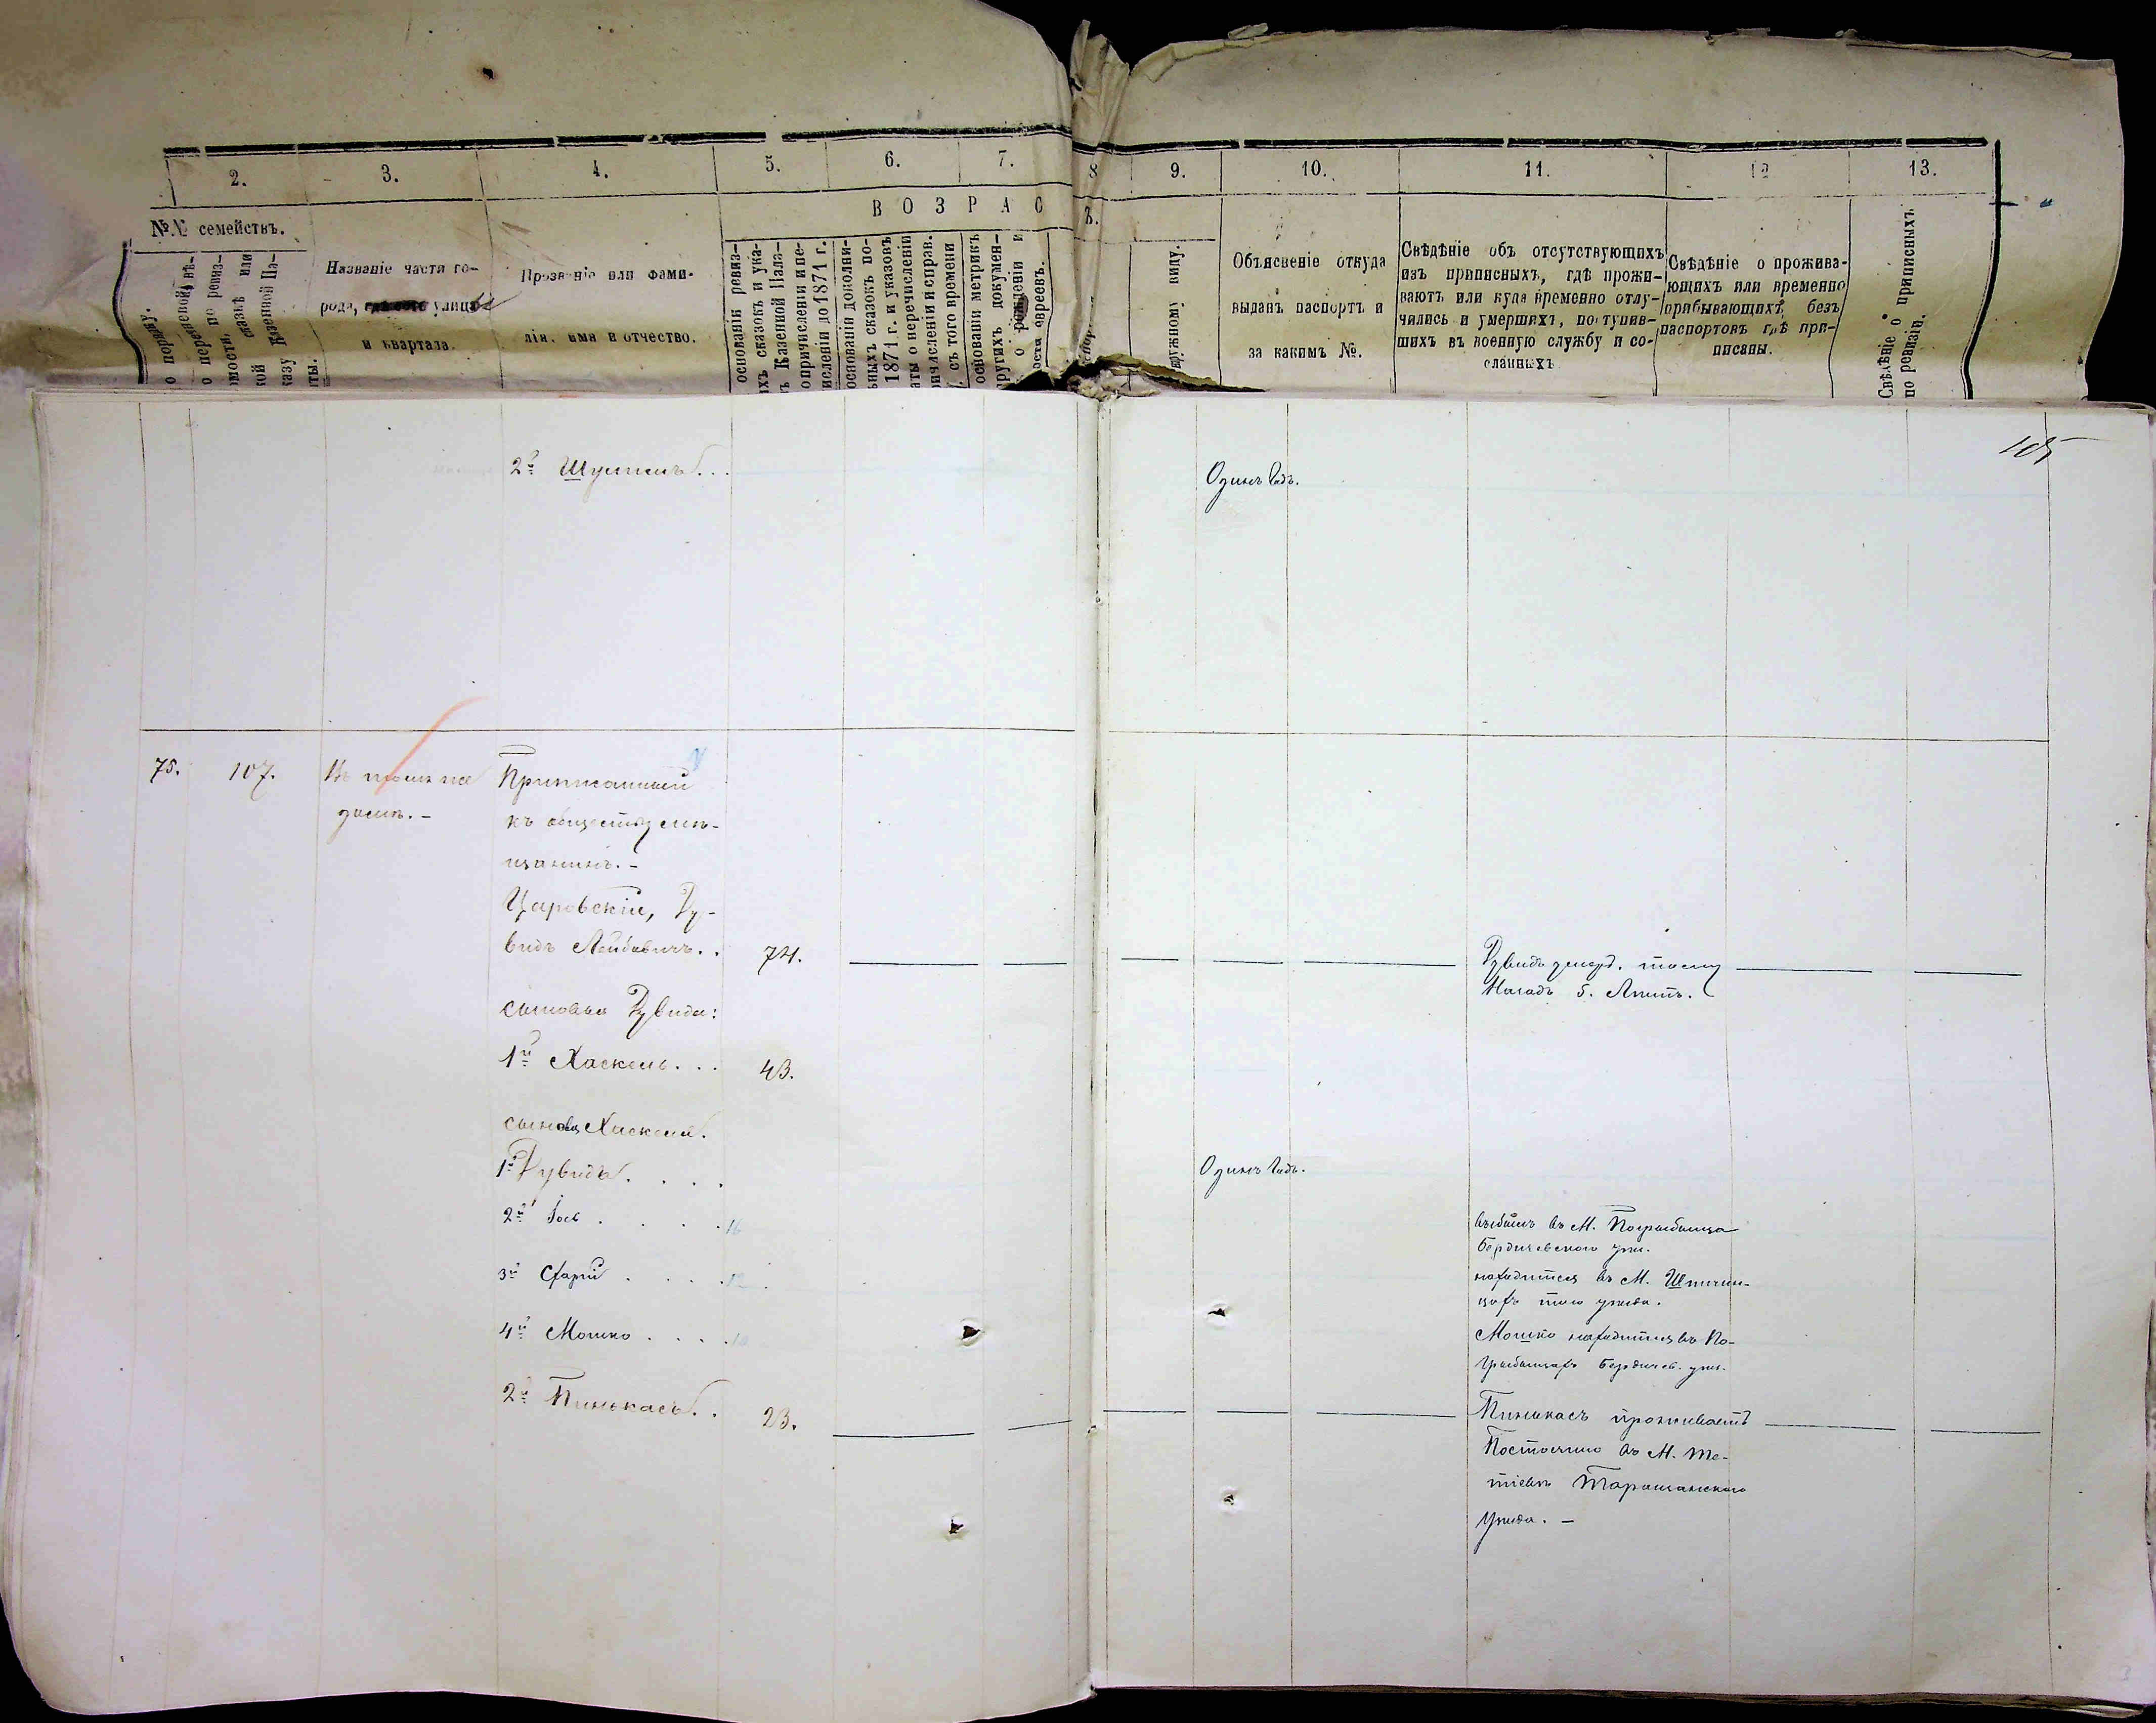 2. 3. 4. 5. 6. 7. 8 9. 10. 11. 12 13.
№№ семействъ.
о порядку.
Названіе части го-
рода, улицы
и квартала.
Прозваніе или фами-
лія, имя и отчество.
ВОЗРАС
ъ.
основаніи ревиз-
ихъ сказокъ и ука-
ъ Казенной Пала-
о причисленіи и пе-
исленіи до 1871 г.
основаніи дополни-
ьныхъ сказокъ по-
1871 г. и указовъ
аты о перечисленіи
ричисленіи и справ.
съ того времени
основаніи метрикъ
ругихъ докумен-
о рожденіи и
ости евреевъ.
ружному виду.
Объясненіе откуда
выданъ паспортъ и
за какимъ №.
Свѣдѣніе объ отсутствующихъ
изъ приписныхъ, гдѣ прожи-
ваютъ или куда временно отлу-
чились и умершихъ, поступив-
шихъ въ военную службу и со-
сланныхъ
Свѣдѣніе о прожива-
ющихъ или временно
прибывающихъ, безъ
паспортовъ гдѣ при-
писаны.
Свѣдѣніе о приписныхъ
по ревизіи.
105
2й Шулимъ . . Одинъ Годъ.
75. 107. Въ томъ же
домѣ. –
Приписанный
къ обществу мѣ-
щанинъ. –
Царовскій, Ду-
видъ Лейбовичъ. . 74.
Дувидъ умеръ. тому
Назадъ 5. Лѣтъ.
сыновья Дувида:
1й Хаскель . . . 43.
сыновья Хаскеля.
1й Дувидъ . . . . Одинъ Годъ.
2й Іось . . . . 16
выбылъ въ М. Погребыща
Бердичевскаго уѣз.
3й Сфарій . . . . 12
находится въ М. Шпичин-
цахъ того уѣзда.
4й Мошко . . . . 10
Мошко находится въ По-
гребыщахъ Бердичев. уѣз.
2й Пинькасъ . . 23.
Пинькасъ проживаетъ
Постоянно въ М. Те-
тіевѣ Таращанскаго
Уѣзда. –